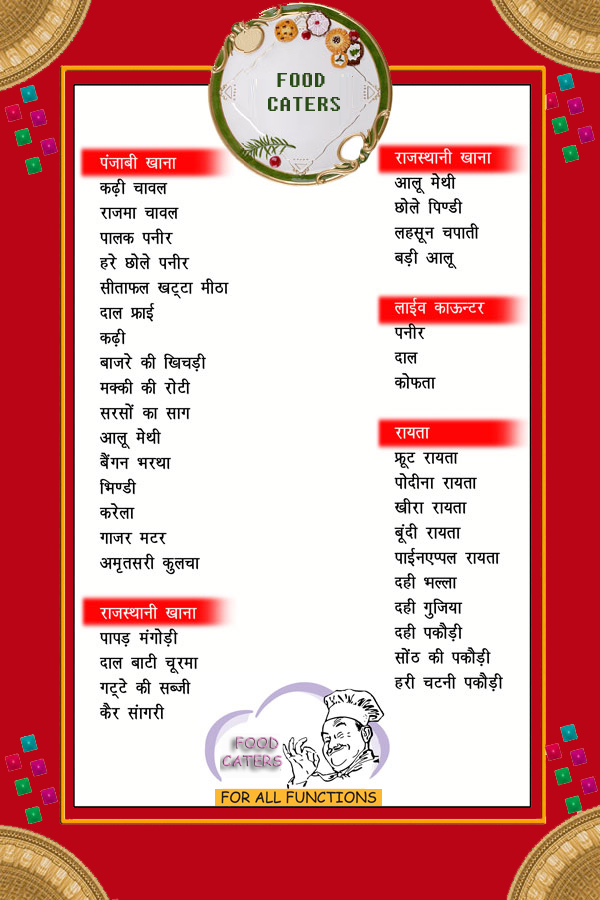 FOOD
CATERS
पंजाबी खाना
कढ़ी चावल
राजमा चावल
पालक पनीर
हरे छोले पनीर
सीताफल खट्टा मीठा
दाल फ्राई
कढ़ी
बाजरे की खिचड़ी
मक्की की रोटी
सरसों का साग
आलू मेथी
बैंगन भरथा
भिण्डी
करेला
गाजर मटर
अमृतसरी कुलचा
राजस्थानी खाना
पापड़ मंगोड़ी
दाल बाटी चूरमा
गट्टे की सब्जी
कैर सांगरी
राजस्थानी खाना
आलू मेथी
छोले पिण्डी
लहसून चपाती
बड़ी आलू
लाईव काऊन्टर
पनीर
दाल
कोफता
रायता
फ्रूट रायता
पोदीना रायता
खीरा रायता
बूंदी रायता
पाईनएप्पल रायता
दही भल्ला
दही गुजिया
दही पकौड़ी
सोंठ की पकौड़ी
हरी चटनी पकौड़ी
FOOD
CATERS
FOR ALL FUNCTIONS